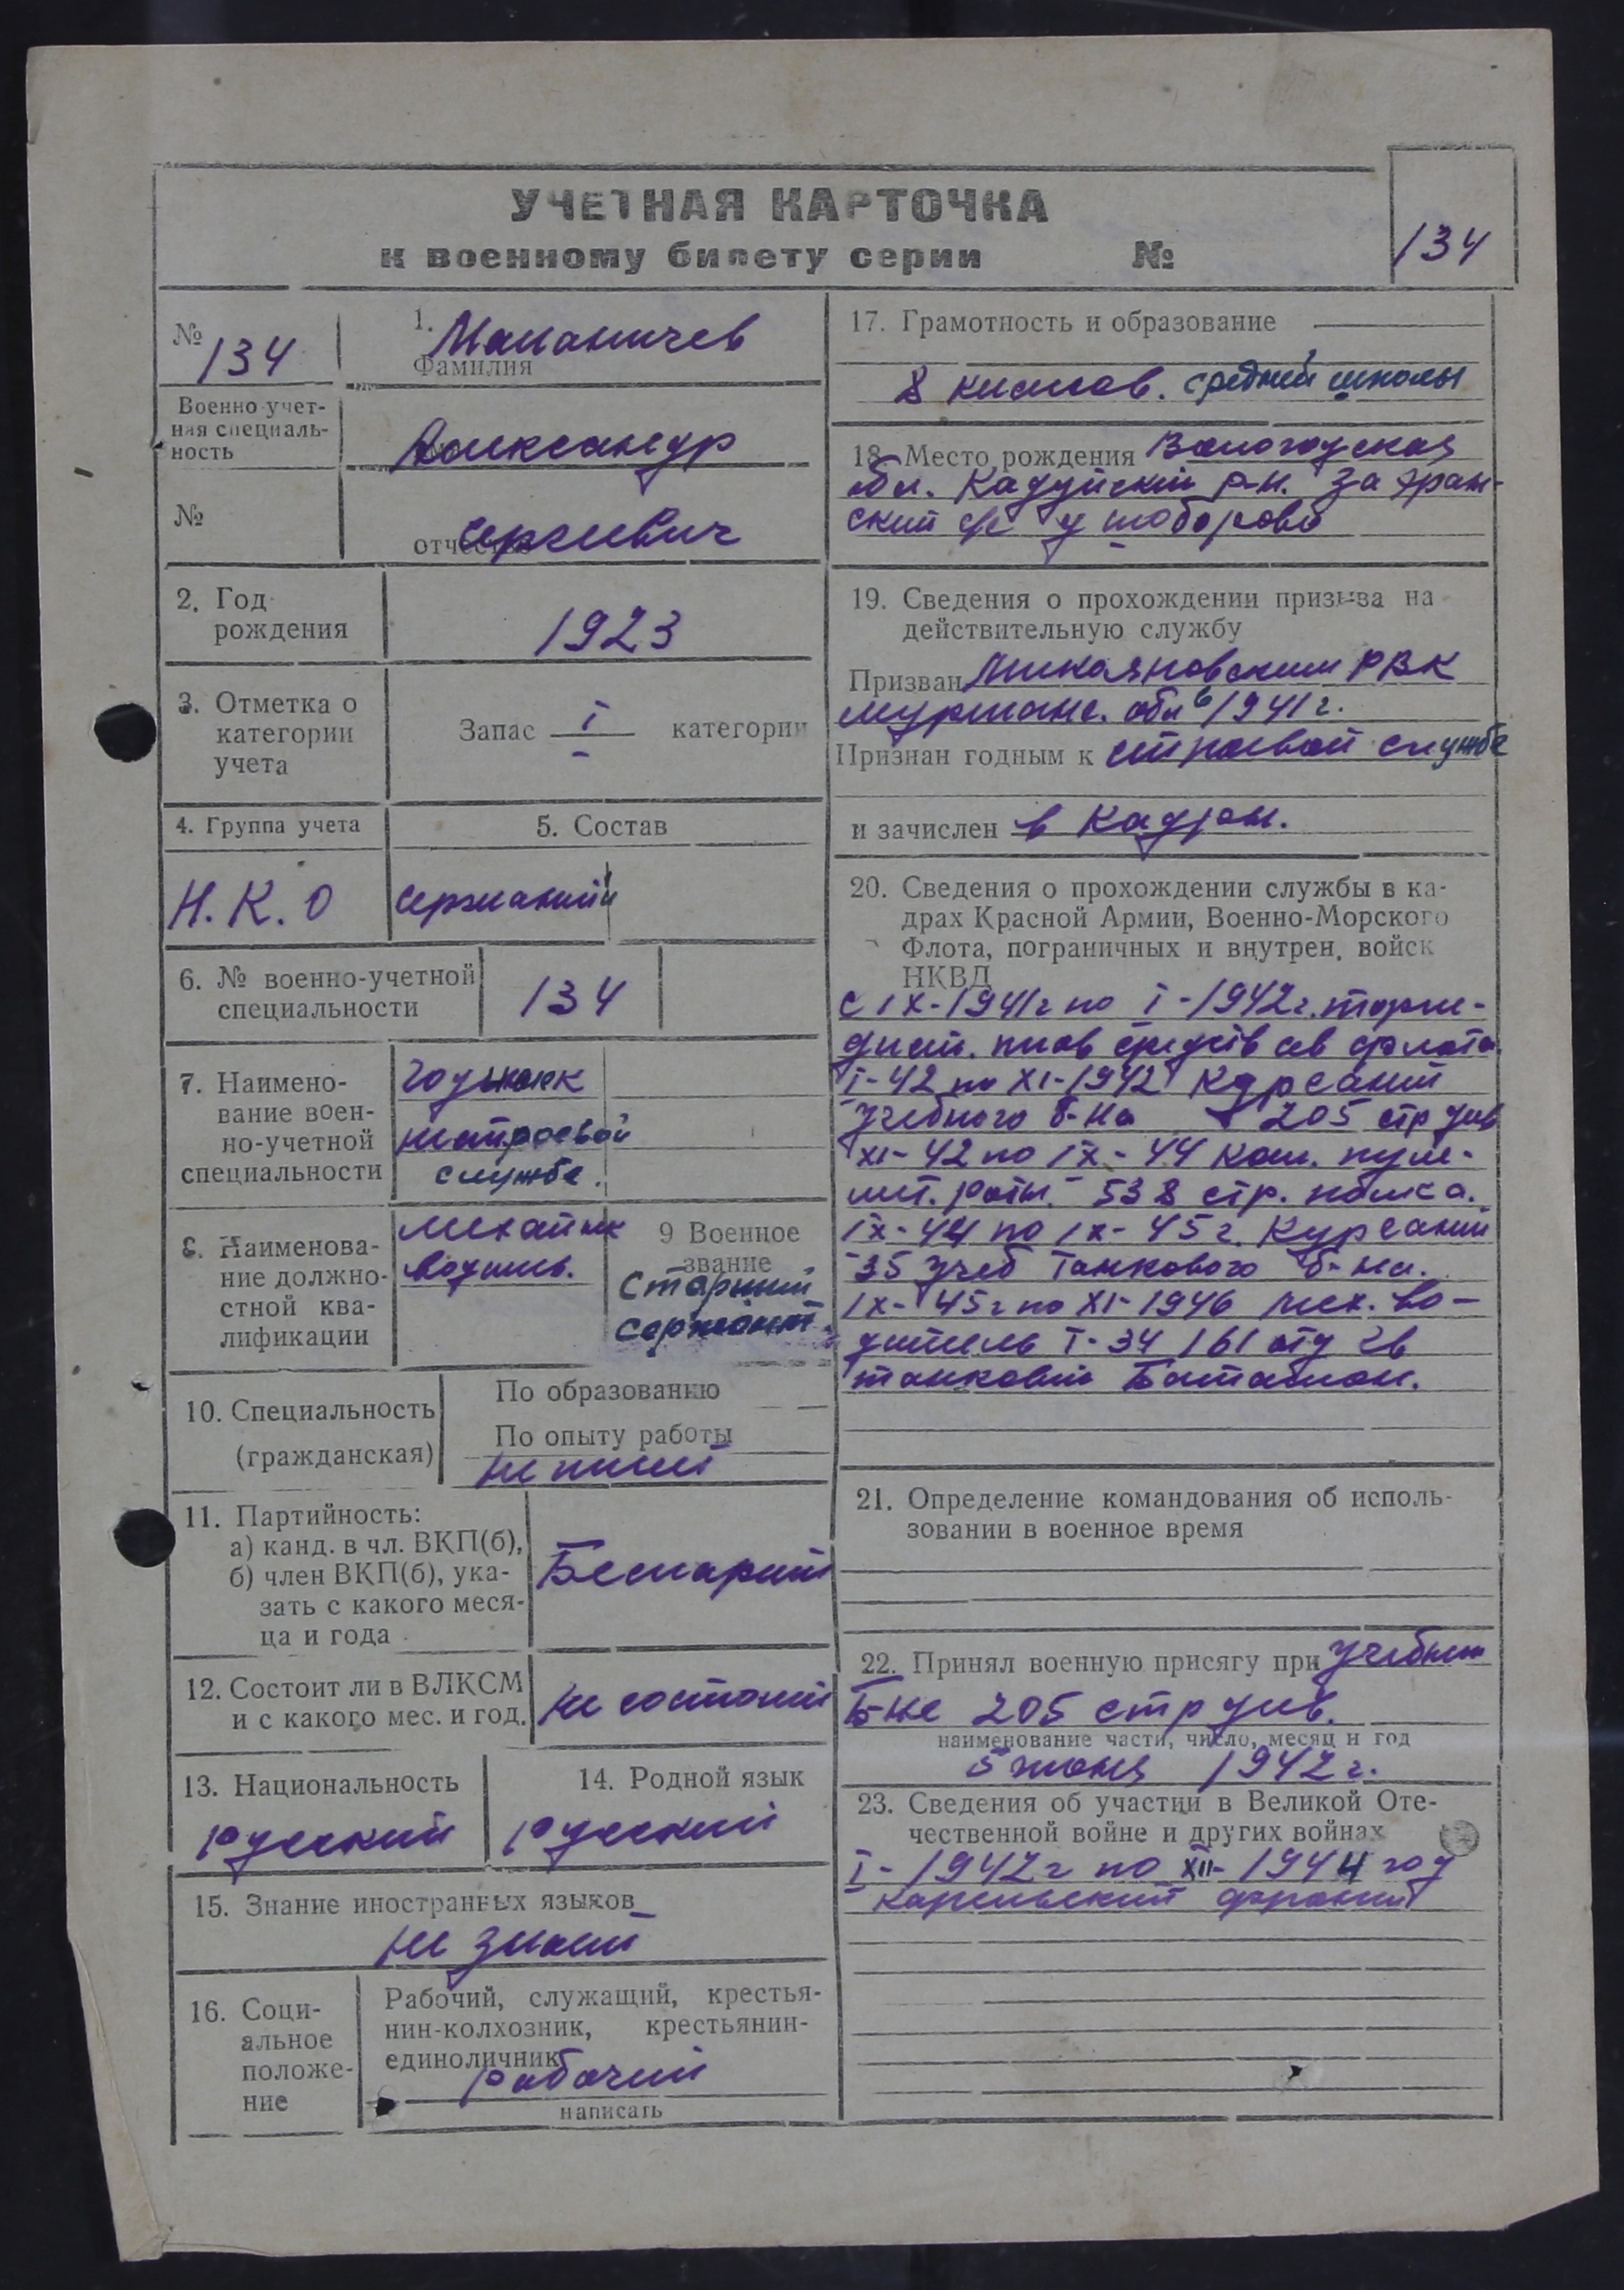 УЧЕТНАЯ КАРТОЧКА
к военному билету серии №
134
№
134
1. Маланичев
Фамилия
Военно-учет-
ная специаль-
ность
Александр
№
Сергеевич
отчество
2. Год
рождения
1923
3. Отметка о
категории
учета
Запас I категории
4. Группа учета
5. Состав
Н.К.О
сержантский
6. № военно-учетной
специальности
134
7. Наимено-
вание воен-
но-учетной
специальности
годный к
строевой
службе.
8. Наименова-
ние должно-
стной ква-
лификации
механик
водитель.
9 Военное
звание
Старший
сержант
10. Специальность
(гражданская)
По образованию
По опыту работы
не имеет
11. Партийность:
а) канд. в чл. ВКП(б),
б) член ВКП(б), ука-
зать с какого меся-
ца и года
12. Состоит ли в ВЛКСМ
и с какого мес. и год.
не состоит
13. Национальность
русский
14. Родной язык
русский
15. Знание иностранных языков
не знает
16. Соци-
альное
положе-
ние
Рабочий, служащий, крестья-
нин-колхозник, крестьянин-
единоличник
рабочий
написать
17. Грамотность и образование
8 классов. средней школы
18. Место рождения Вологодская
обл. Кадуйский р-н.
19. Сведения о прохождении призыва на
действительную службу
Призван Микояновским РВК
мурманс. обл в 1941 г.
Признан годным к строевой службе
и зачислен в кадры.
20. Сведения о прохождении службы в ка-
драх Красной Армии, Военно-Морского
Флота, пограничных и внутрен. войск
НКВД
с IX-1941г по I-1942г.
флота
I-42 по XI-1942 курсант
учебного б-на 205 стр див
XI-42 по IX-44 ком. пуле-
мёт. роты. 538 стр. полка.
IX-44 по IX-45 г. курсант
35 учеб танкового б-на.
IX-45г по XI-1946 мех. во-
дитель Т-34 161 отд гв
танковый Батальон.
21. Определение командования об исполь-
зовании в военное время
22. Принял военную присягу при учебном
Б-не 205 стр див.
наименование части, число, месяц и год
5 1942 г.
23. Сведения об участии в Великой Оте-
чественной войне и других войнах
I-1942г по XII-1944 год
карельский фронт